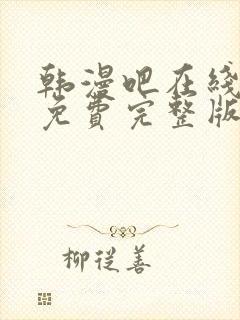 韩漫吧在线
免費完整版
柳從善